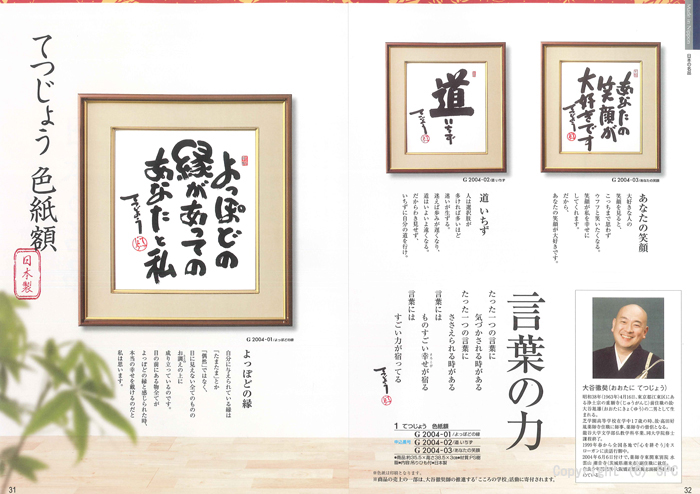 てつじょう 色紙額
日本製
よっぽどの
縁があっての
あなたと私
てつじょう
G 2004-01/よっぽどの縁
よっぽどの縁
自分に与えられている縁は
「たまたま」とか
「偶然」ではなく、
目に見えない全てのものの
お調えの上に
成り立っているのです。
目の前にある物全てが
よっぽどの縁と感じられた時、
本当の幸せを戴けるのだと
私は思います。
31
日本の名匠
道
いちず
G 2004-02/道 いちず
道 いちず
人は選択肢が
多ければ多いほど
迷いが生ずる。
迷えば歩みが遅くなり、
道はいよいよ遠くなる。
だからわき見せず、
いちずに自分の道を行け。
あなたの
笑顔が
大好きです
G 2004-03/あなたの笑顔
あなたの笑顔
大好きな人の
笑顔を見ると、
こっちまで思わず
ウフフと笑いたくなる。
笑顔が私を幸せに
してくれます。
だから、
あなたの笑顔が大好きです。
言葉の力
たった一つの言葉に
気づかされる時がある
たった一つの言葉に
ささえられる時がある
言葉には
ものすごい幸せが宿る
言葉には
すごい力が宿ってる
大谷徹奘(おおたに てつじょう)
1 てつじょう 色紙額
申込番号 G 2004-01/よっぽどの縁
G 2004-02/道 いちず
G 2004-03/あなたの笑顔
※色紙は印刷となります。
※商品の売上の一部は、大谷徹奘師の推進する「こころの学校」活動に寄付されます。
32